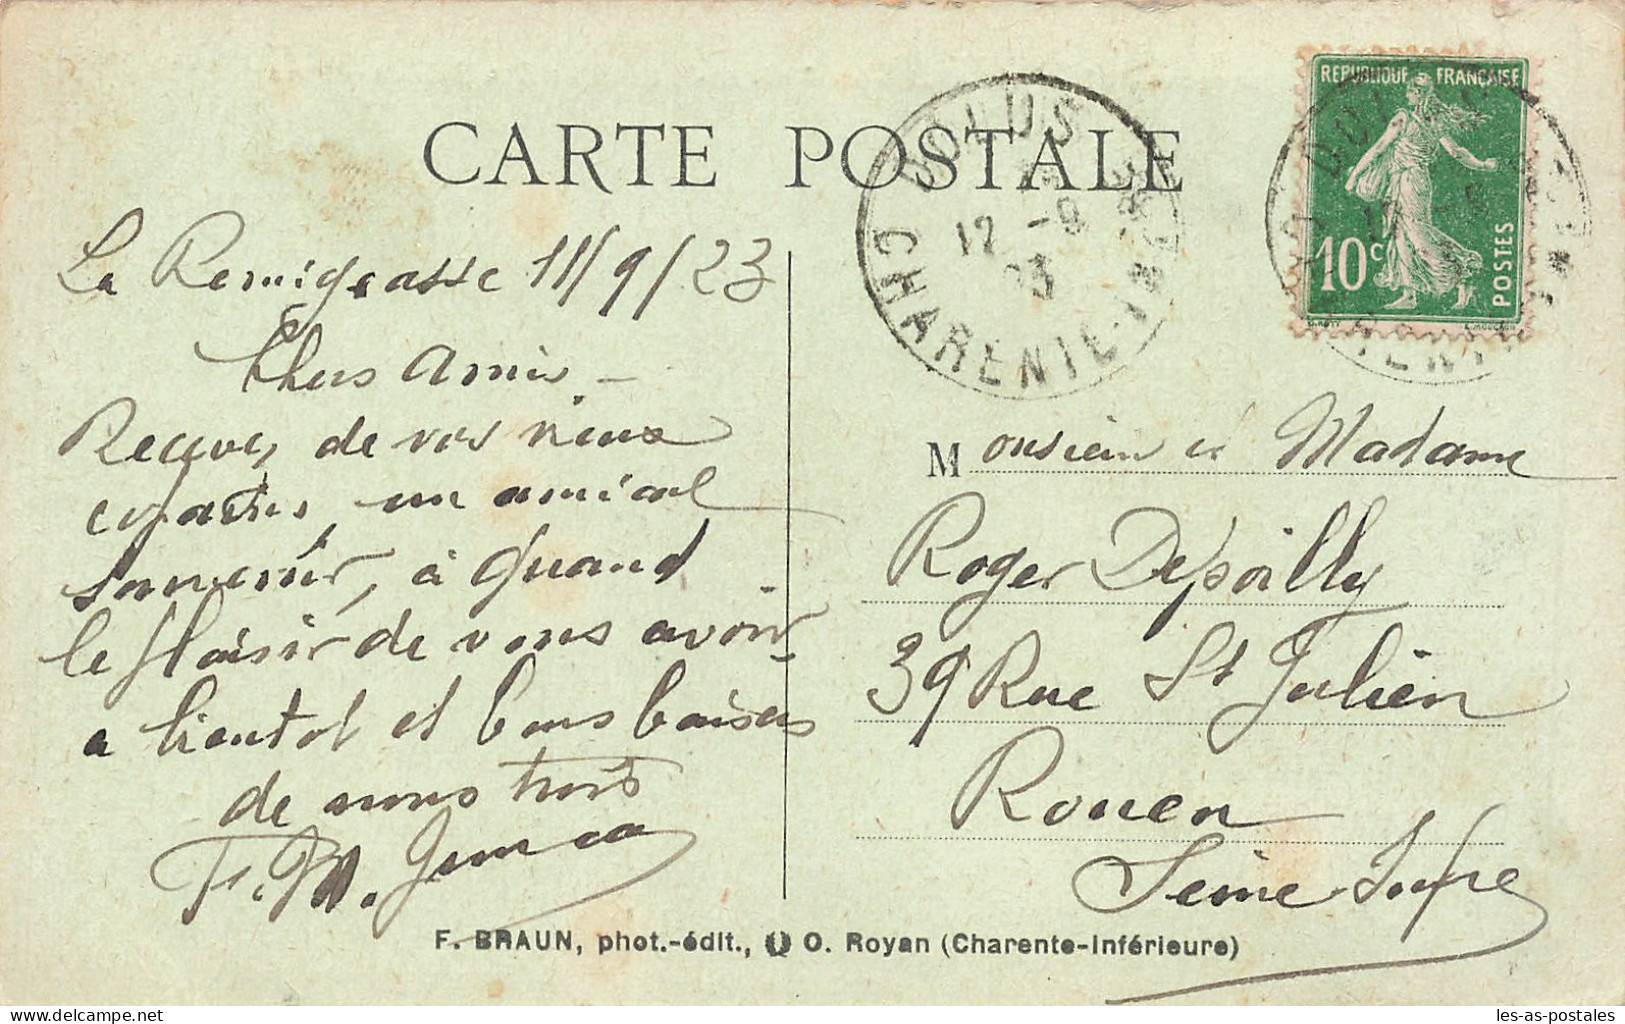 CARTE POSTALE
REPUBLIQUE FRANÇAISE
10c
POSTES
DOLUS
12 -9
23
CHARENTE-INFRE
La Remigeasse 11/9/23
Chers Amis -
Recevez de vos vieux
copains, un amical
souvenir, à quand
le plaisir de vous avoir
a bientot et bons baisers
de nous trois
F. M.
Monsieur et Madame
Roger Depoilly
39 Rue St Julien
Rouen
Seine Infre
F. BRAUN, phot.-édit., O. Royan (Charente-Inférieure)
les-as-postales